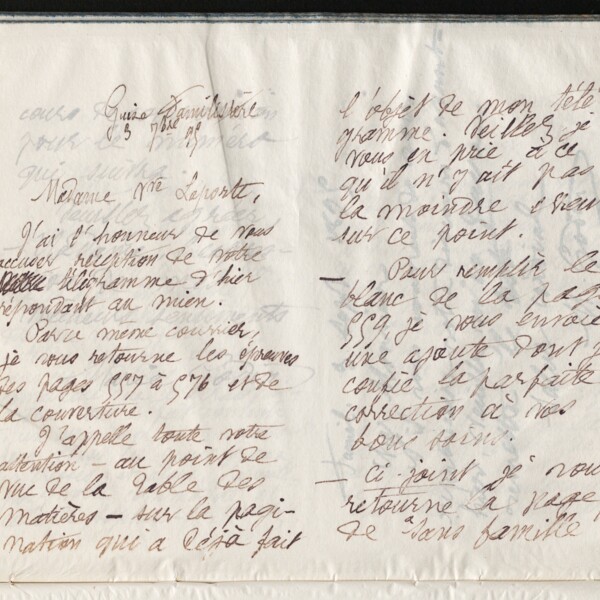 Guise Familistère
3 7bre 95
Madame Vve Laporte,
J'ai l'honneur de vous
accuser réception de votre
télégramme d'hier
répondant au mien.
Par ce même courrier,
je vous retourne les épreuves
des pages 557 à 576 et de
la couverture.
J'appelle toute votre
attention – au point de
vue de la table des
matières – sur la pagi-
nation qui a déjà fait
l'objet de mon télé
gramme. Veillez, je
vous en prie à ce
qu'il n'y ait pas
la moindre erreur
sur ce point.
– Pour remplir le
blanc de la page
559 je vous envoie
une ajoute dont je
confie la parfaite
correction à vos
bons soins.
– Ci-joint je vous
retourne la page
de "Sans famille